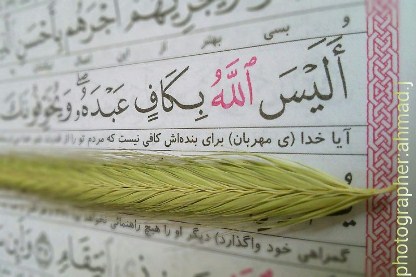 وَيَجْزِيَهُمْ أَجْرَهُم بِأَحْسَنِ
و بسی بهتر از
أَلَيْسَ ٱللَّهُ بِكَافٍ عَبْدَهُۥ ۖ وَيُخَوِّفُونَكَ
آیا خدا (ی مهربان) برای بنده‌اش کافی نیست که مردم تو را از
گمراهی خود واگذارد) دیگر او را هیچ راهنمائی نخواهد
ٱنتِقَامٍ
photographer:ahmad.j